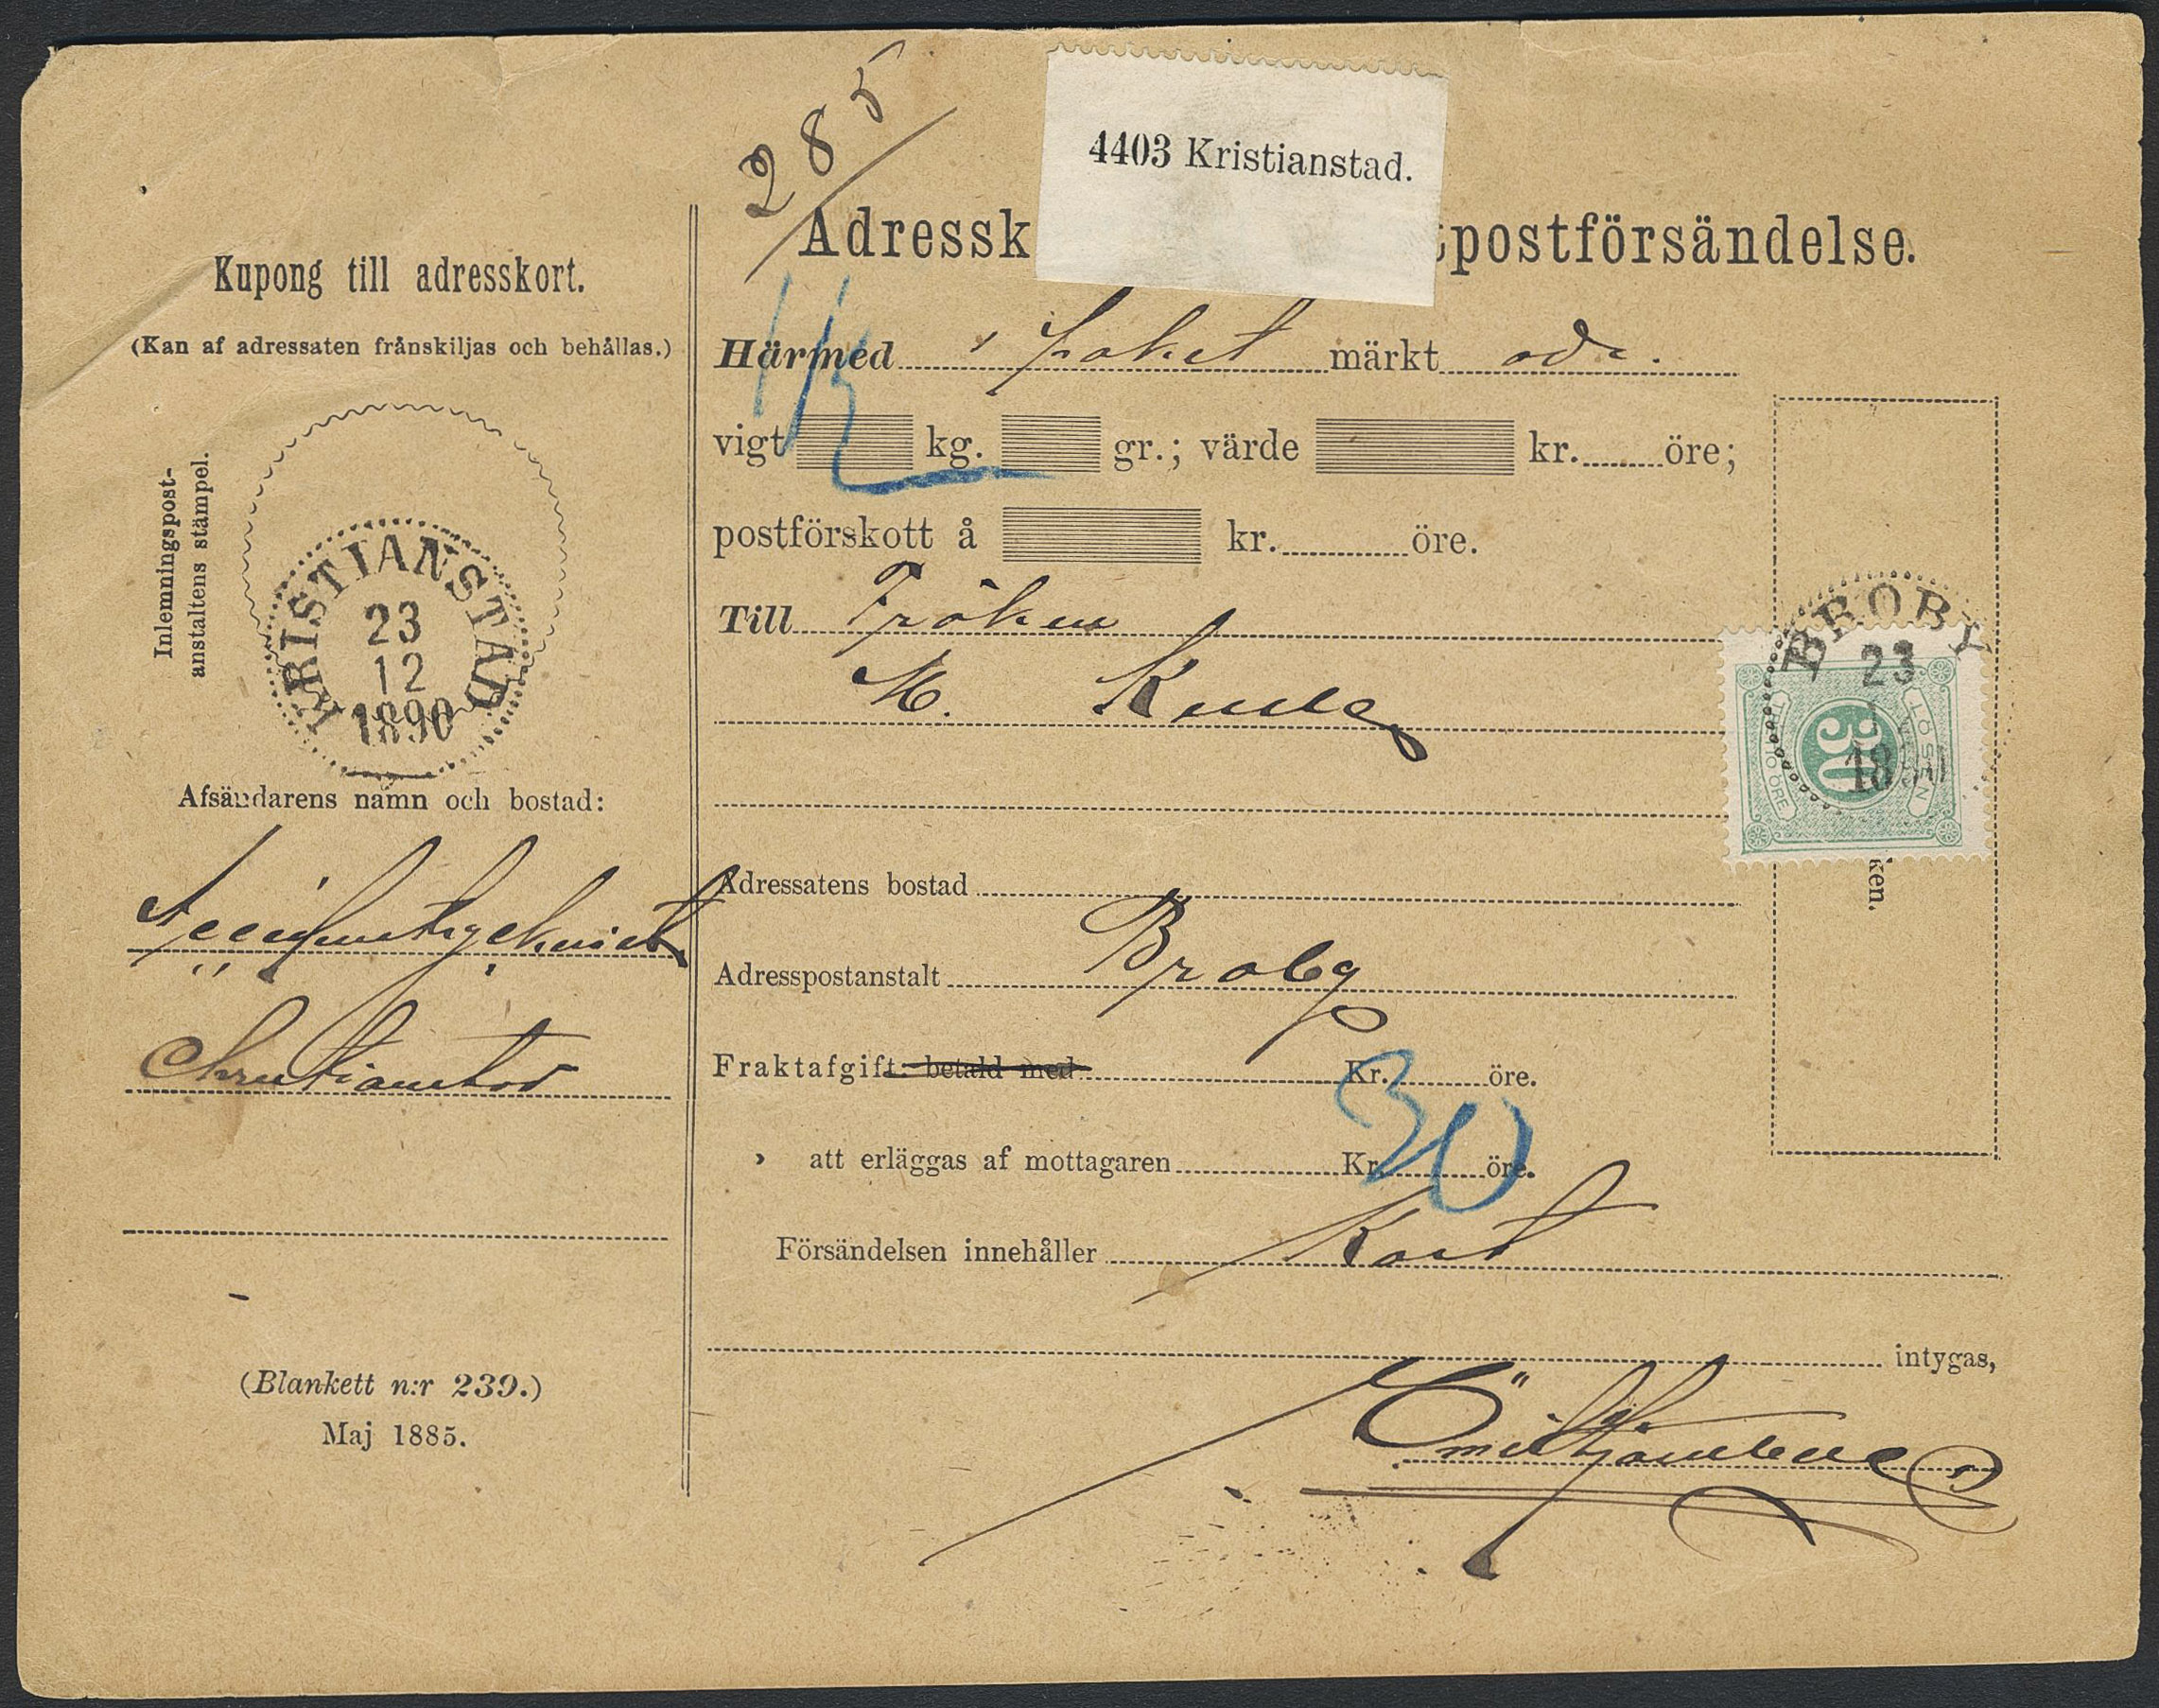 285
4403 Kristianstad.
Adressk tpostförsändelse.
Kupong till adresskort.
(Kan af adressaten frånskiljas och behållas.)
Härmed 1 paket märkt adr.
vigt kg. gr.; värde kr. öre;
postförskott å kr. öre.
Inlemningspost-
anstaltens stämpel.
KRISTIANSTAD
23
12
1890
Till Fröken
M.
BROBY
23
LÖSEN
30
TRETTIO ÖRE
Afsändarens namn och bostad:
Accidenstryckeriet
Christianstad
Adressatens bostad
ken.
Adresspostanstalt Broby
Fraktafgift: betald med: Kr. öre.
30
› att erläggas af mottagaren Kr. öre.
Försändelsen innehåller Kort
intygas,
Emil
(Blankett n:r 239.)
Maj 1885.